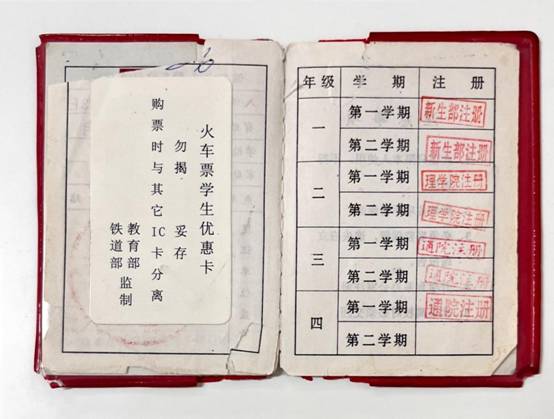 火车票学生优惠卡
勿揭 妥存
购票时与其它IC卡分离
教育部
铁道部 监制
年级 学期 注册
一 第一学期 新生部注册
第二学期 新生部注册
二 第一学期 理学院注册
第二学期 理学院注册
三 第一学期 通院注册
第二学期 通院注册
四 第一学期 通院注册
第二学期